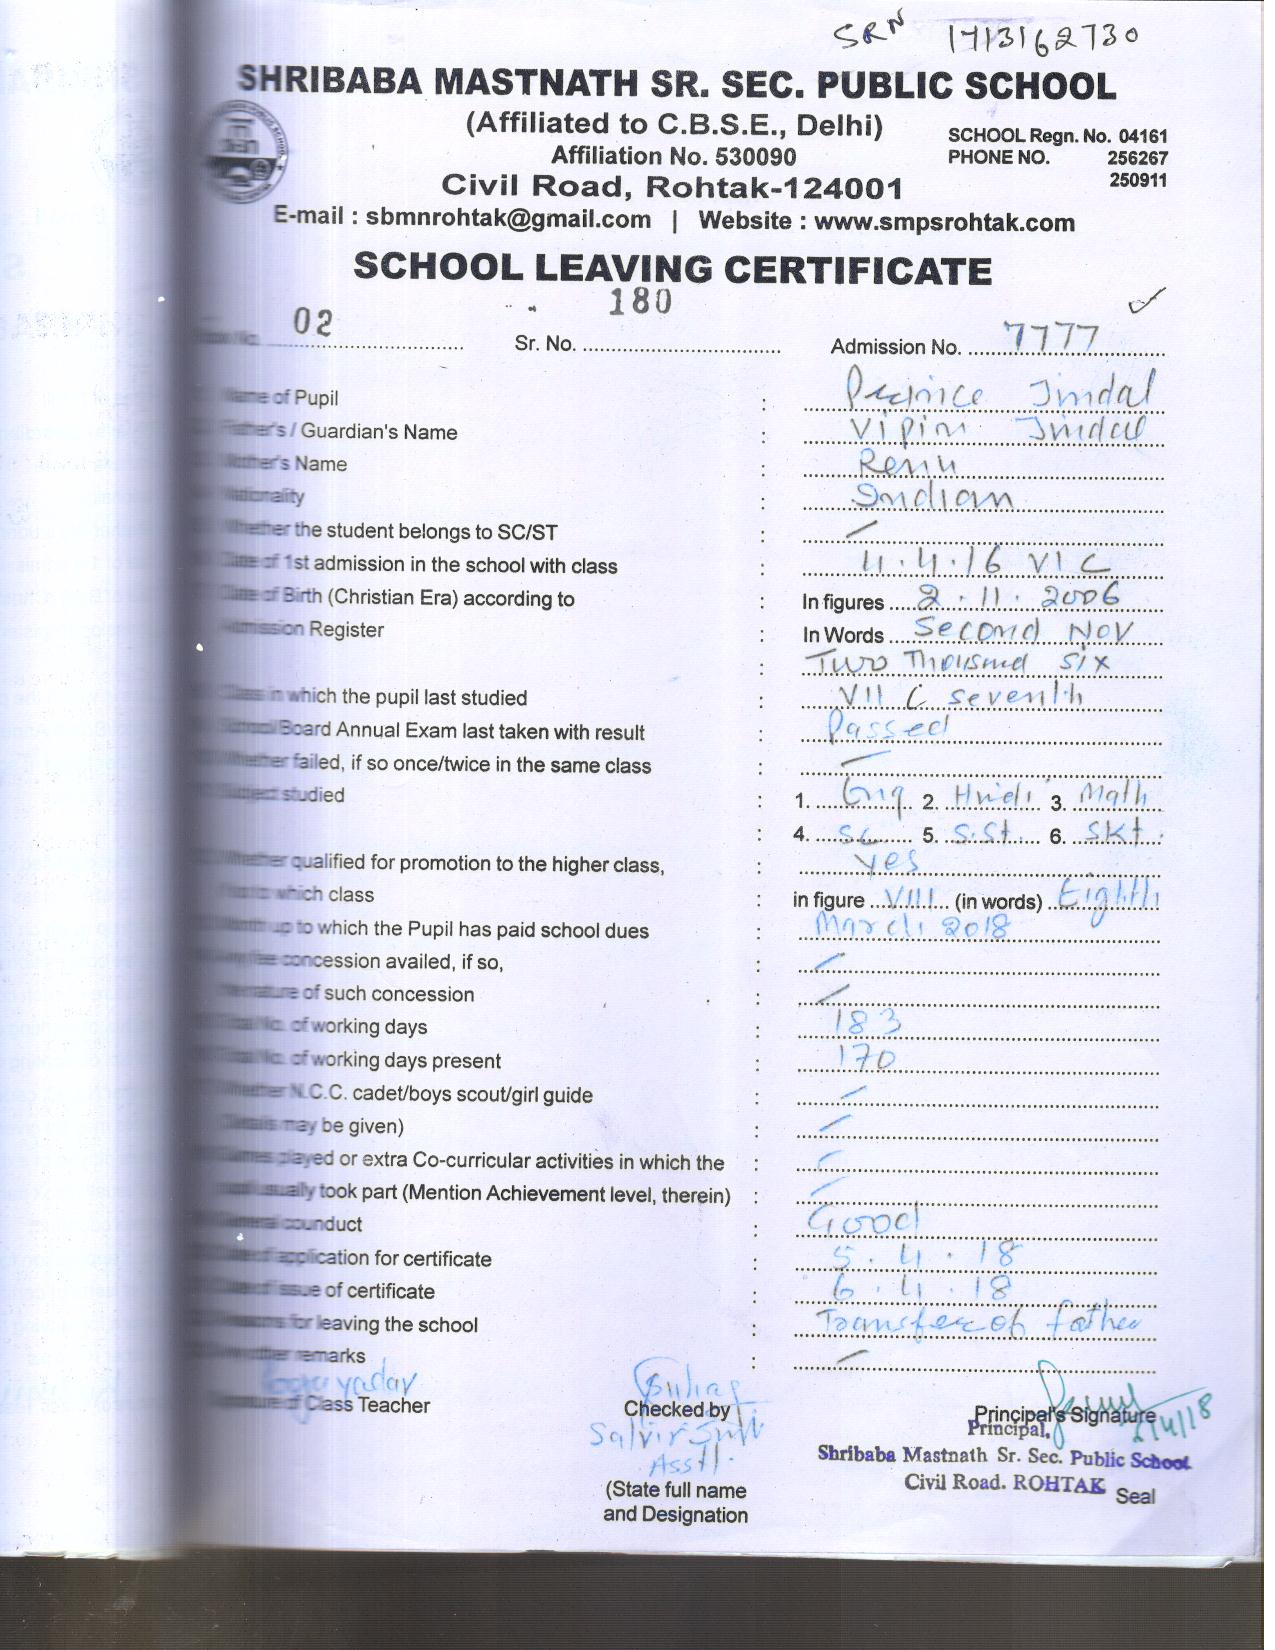 SRN 1713162730
SHRIBABA MASTNATH SR. SEC. PUBLIC SCHOOL
(Affiliated to C.B.S.E., Delhi)
SCHOOL Regn. No. 04161
Affiliation No. 530090
PHONE NO. 256267
250911
Civil Road, Rohtak-124001
E-mail : sbmnrohtak@gmail.com | Website : www.smpsrohtak.com
SCHOOL LEAVING CERTIFICATE
No. 02 Sr. No. 180 Admission No. 7777
Name of Pupil : Prince Jindal
Father's / Guardian's Name : Vipin Jindal
Mother's Name : Renu
Nationality : Indian
Whether the student belongs to SC/ST : /
Date of 1st admission in the school with class : 4.4.16 VI C
Date of Birth (Christian Era) according to : In figures 2.11.2006
Admission Register : In Words Second Nov
: Two Thousand Six
Class in which the pupil last studied : VII C seventh
School/Board Annual Exam last taken with result : Passed
Whether failed, if so once/twice in the same class : /
Subject studied : 1. Eng. 2. Hindi 3. Math
: 4. Sc 5. S.St. 6. Skt.
Whether qualified for promotion to the higher class, : yes
which class : in figure VIII (in words) Eighth
Month up to which the Pupil has paid school dues : March 2018
Any fee concession availed, if so, : /
the nature of such concession : /
Total No. of working days : 183
Total No. of working days present : 170
Whether N.C.C. cadet/boys scout/girl guide : /
(Details may be given) : /
Games played or extra Co-curricular activities in which the : /
pupil usually took part (Mention Achievement level, therein) : /
General counduct : Good
Date of application for certificate : 5.4.18
Date of issue of certificate : 6.4.18
Reasons for leaving the school : Transfer of father
Any other remarks : /
yadav
Signature of Class Teacher
Checked by
Asstt.
(State full name
and Designation
Principal's Signature
Principal,
Shribaba Mastnath Sr. Sec. Public School
Civil Road. ROHTAK
Seal